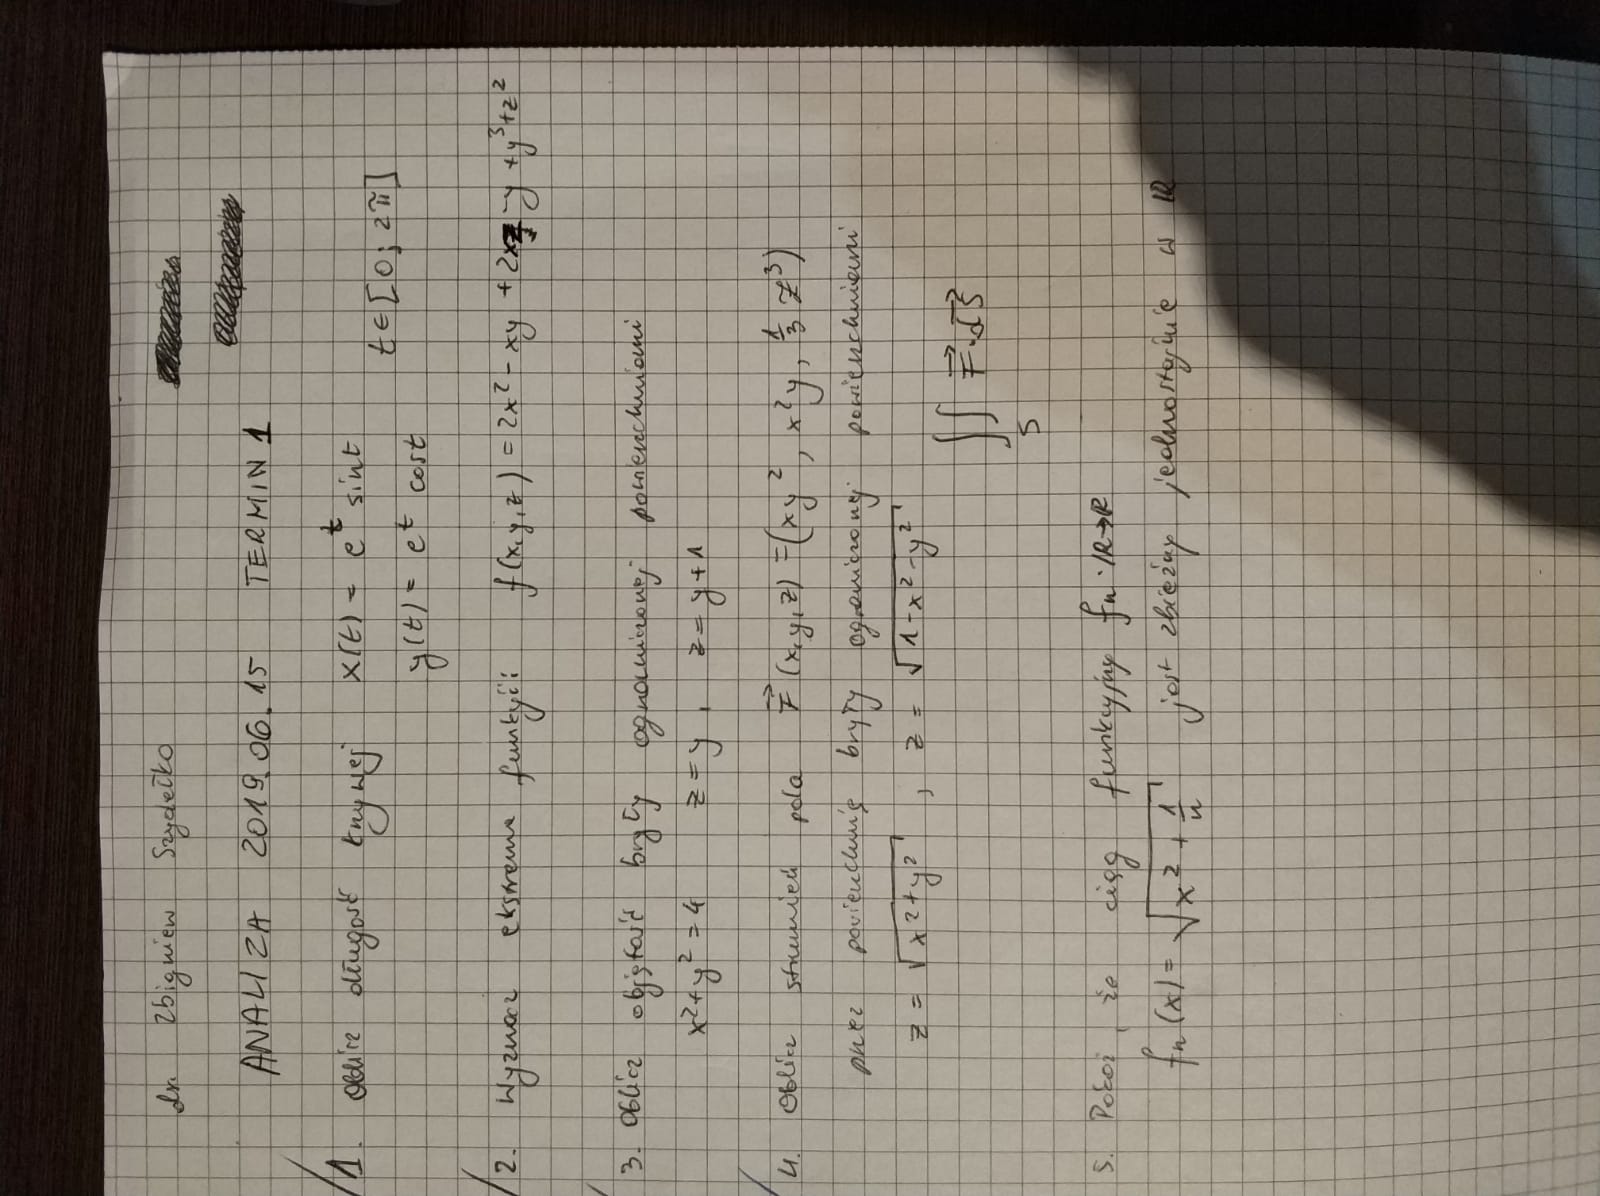 dr. Zbigniew Szydełko
ANALIZA 2019.06.15 TERMIN 1
1. Oblicz długość krzywej x(t) = e^t sint t∈[0; 2π]
y(t) = e^t cost
2. Wyznacz ekstrema funkcji f(x,y,z) = 2x² - xy + 2xz - y + y³ + z²
3. Oblicz objętość bryły ograniczonej powierzchniami
x²+y² = 4 z=y, z=y+1
4. Oblicz strumień pola F⃗(x,y,z) = (xy², x²y, 1/3 z³)
przez powierzchnię bryły ograniczonej powierzchniami
z = √(x²+y²), z = √(1-x²-y²) ∬_S F⃗·dS⃗
5. Pokaż, że ciąg funkcyjny fn: ℝ→ℝ
fn(x) = √(x² + 1/n) jest zbieżny jednostajnie w ℝ